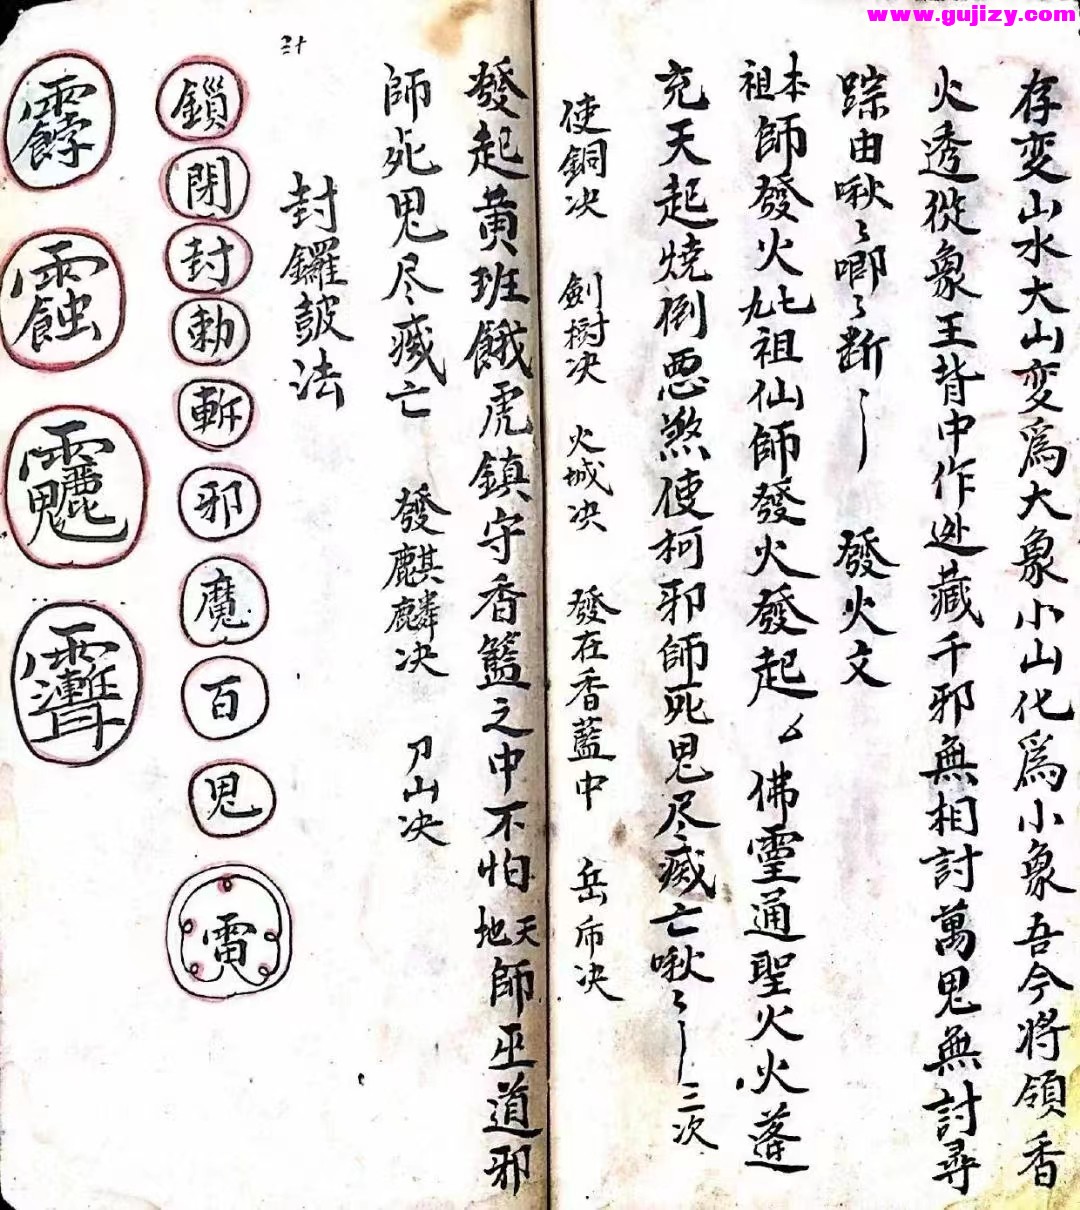 www.gujizy.com
存変山水大山変為大象小山化為小象吾今將領香
火透從象王背中作迯藏千邪無相討萬鬼無討尋
踪由啾〻唧〻断〻 發火文
本祖師發火七九祖仙師發火發起厶佛霊通聖火火蓬
充天起燒倒悪煞使柯邪師死鬼尽滅亡啾〻 三次
使銅决 劍樹决 火城决 發在香藍中 岳帝决
發起黄班餓虎鎮守香籃之中不怕天地師巫道邪
師死鬼尽滅亡 發麒麟决 刀山决
封鑼鼓法
鎖閉封勅斬邪魔百鬼雷